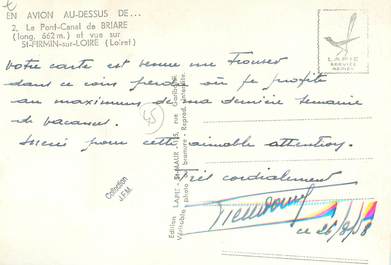 EN AVION AU-DESSUS DE...
2. Le Pont-Canal de BRIARE
(long. 662 m.) et vue sur
St-FIRMIN-sur-LOIRE (Loiret)
LAPIE
SERVICE
AERIEN
Votre carte est venue me trouver
dans ce coin perdu où je profite
au maximum de ma dernière semaine
de vacances.
Merci pour cette aimable attention.
Très cordialement
ce 26/8/58
45
Collection
J.E.M.
Edition LAPIE - St-MAUR
Véritable photo au bromure - Reprod. interdite